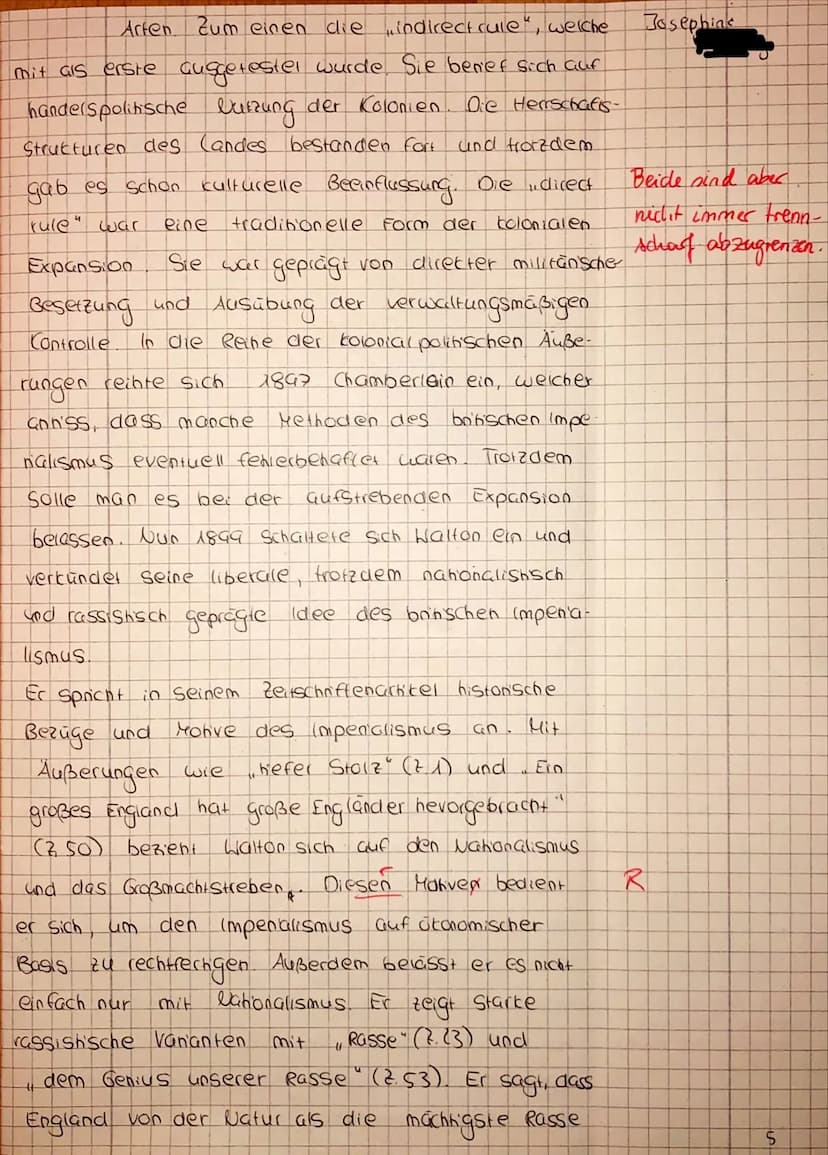 Arten. Zum einen die „indirect rule", welche
Josephine
mit als erste ausgetestet wurde. Sie berief sich auf
handelspolitische Nutzung der Kolonien. Die Herrschafts-
strukturen des Landes bestanden fort und trotzdem
gab es schon kulturelle Beeinflussung. Die „direct
rule" war eine traditionelle Form der kolonialen
Expansion. Sie war geprägt von direkter militärischer
Besetzung und Ausübung der verwaltungsmäßigen
Kontrolle. In die Reihe der kolonialpolitischen Äuße-
rungen reihte sich 1897 Chamberlain ein, welcher
anriss, dass manche Methoden des britischen Impe-
rialismus eventuell fehlerbehaftet waren. Trotzdem
solle man es bei der aufstrebenden Expansion
belassen. Nun 1899 schaltete sich Walton ein und
verkündet seine liberale, trotzdem nationalistisch
und rassistisch geprägte Idee des britischen Imperia-
lismus.
Er spricht in seinem Zeitschriftenartikel historische
Bezüge und Motive des Imperialismus an. Mit
Äußerungen wie „tiefer Stolz" (Z.1) und „Ein
großes England hat große Engländer hevorgebracht"
(Z.50) bezieht Walton sich auf den Nationalismus
und das Großmachtstreben. Diesen Motven bedient
er sich, um den Imperialismus auf ökonomischer
Basis zu rechtfertigen. Außerdem belässt er es nicht
einfach nur mit Nationalismus. Er zeigt starke
rassistische Varianten mit „Rasse" (Z.23) und
„dem Genius unserer Rasse" (Z.53). Er sagt, dass
England von der Natur als die mächtigste Rasse
Beide sind aber
nicht immer trenn-
scharf abzugrenzen.
R
5